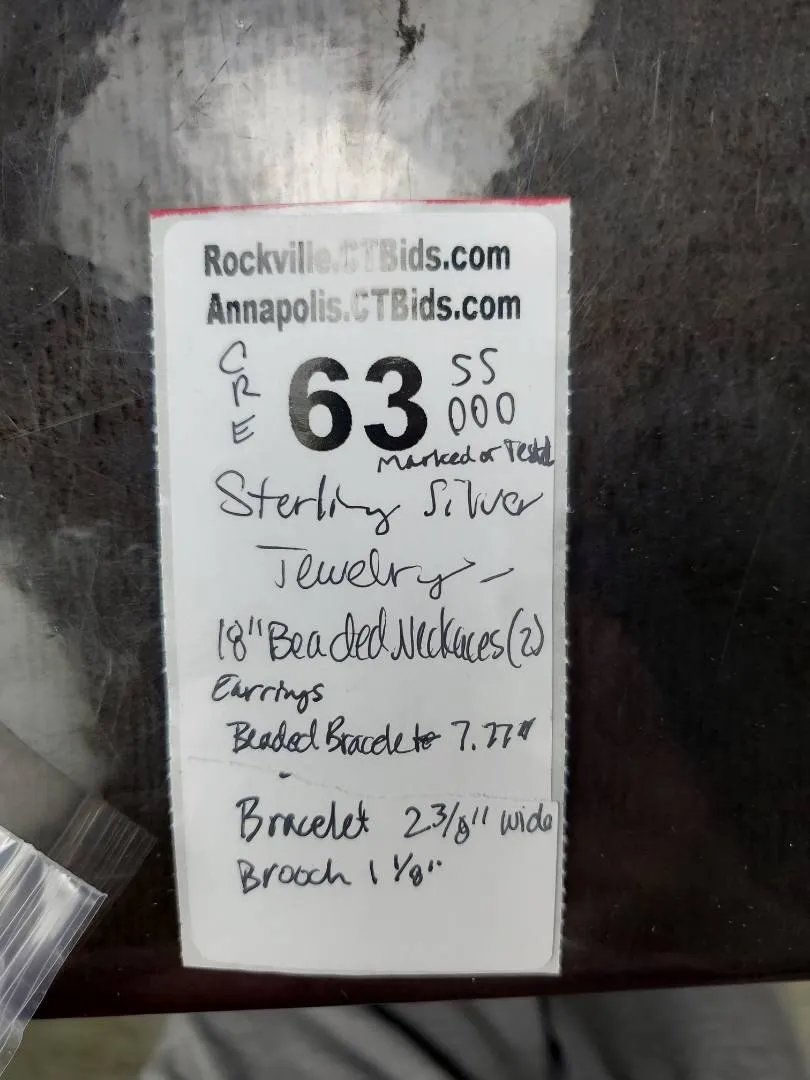 Rockville.CTBids.com
Annapolis.CTBids.com
CRE
63
SS
000
Marked or Tested
Sterling Silver
Jewelry -
18" Beaded Neckaces (2)
Earrings
Beaded Bracelet 7.77"
Bracelet 2 3/8" wide
Brooch 1 1/8"